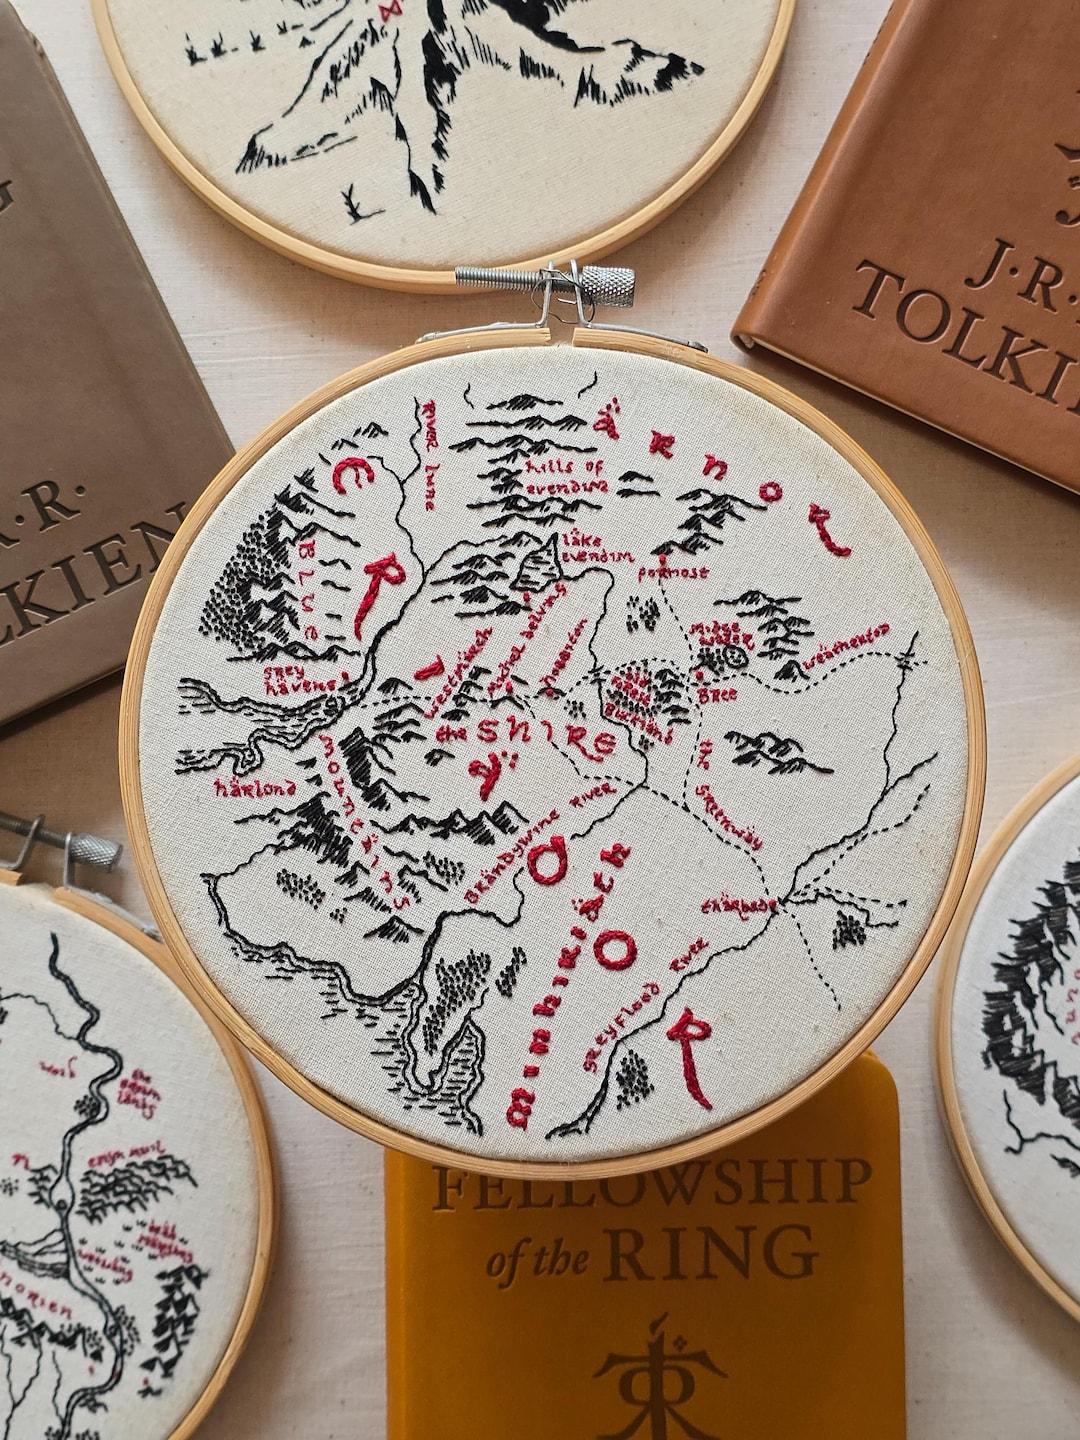 J.R.
TOLKIEN
J.R.
TOLKIEN
RIVER LUNE
ARNOR
ERIADOR
hills of
evendim
lake
evendim
fornost
BLUE
mountains
grey
havens
harlond
westmarch
michel delving
hobbiton
the SHIRE
old
forest
Buckland
midge
water
weathertop
Bree
the greenway
Brandywine River
tharbad
minhiriath
greyflood River
the
brown
lands
emyn muil
dead
marshes
FELLOWSHIP
of the RING